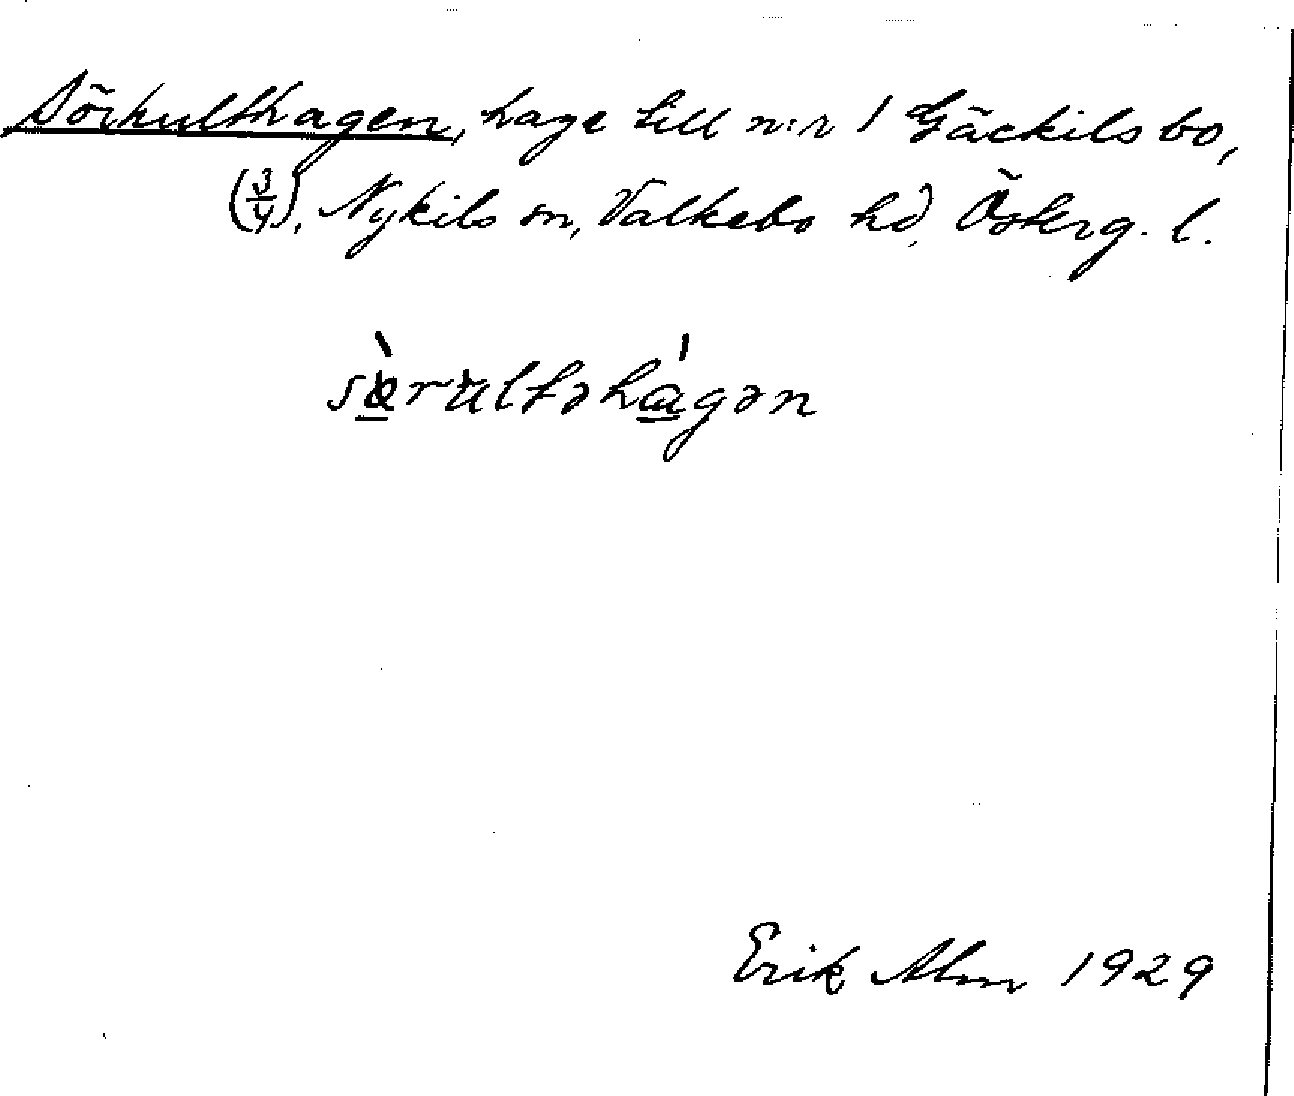 Sörhulthagen, hage till n:r 1 Gäckilsbo,
(3/4), Nykils sn, Valkebo hd, Österg. l.
Erik Alm 1929